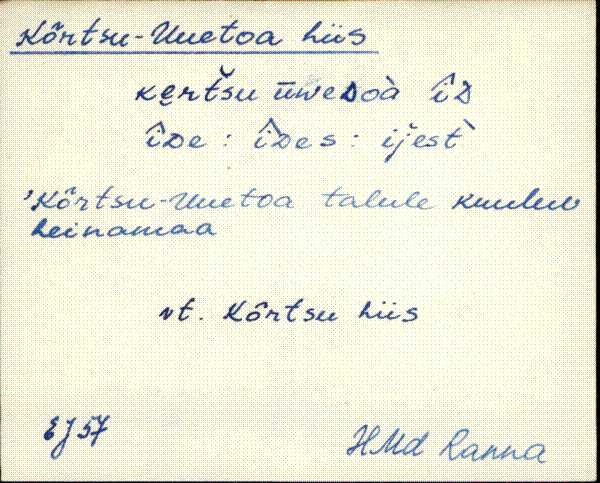 Kõrtsu-Uuetoa hiis
kertšu ūweDoà îD
îDe : îDes : ijest̀
'Kõrtsu-Uuetoa talule kuuluv
heinamaa
vt. Kõrtsu hiis
EJ 57
HMd Ranna